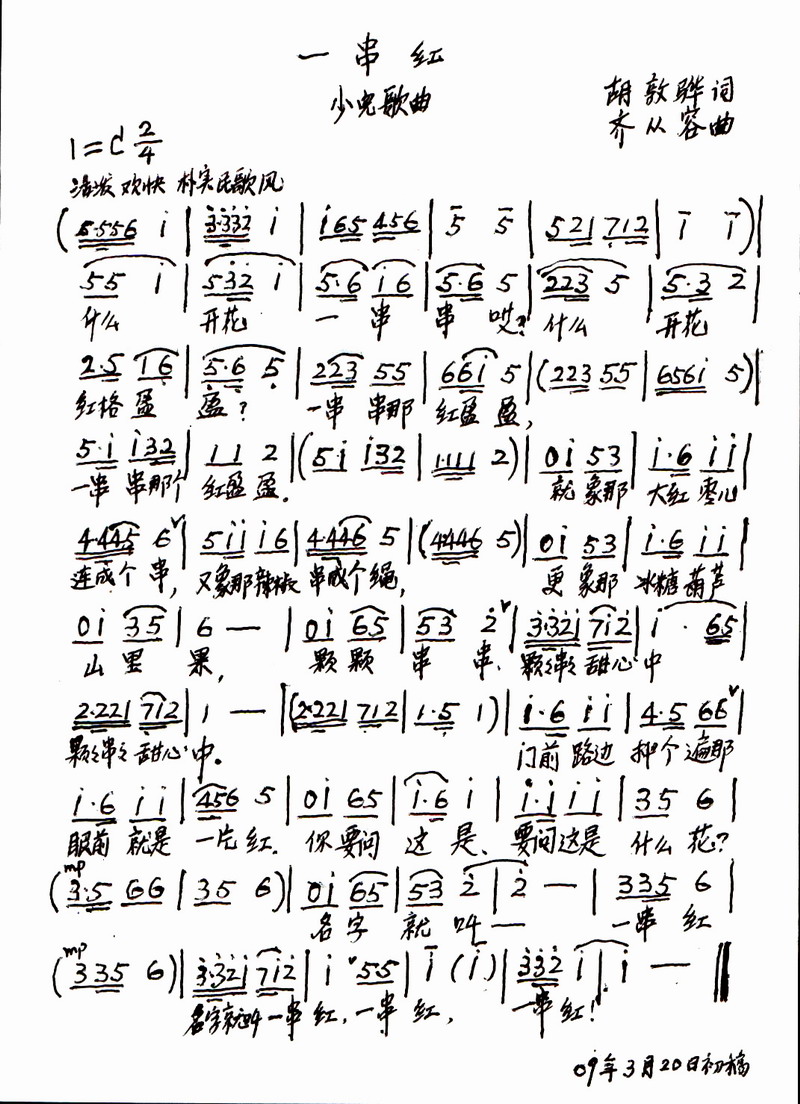 一串红
少儿歌曲
胡敦骅词
齐从容曲
1=C 2/4
活泼 欢快 朴实民歌风
(5·556 i | 3·332 i | i65 456 | 5 5 | 521 712 | i i )|
55 i | 532 i | 5·6 i6 | 5·6 5 | 223 5 | 5·3 2
什么 开花 一串 串 哎? 什么 开花
2·5 16 | 5·6 5 | 223 55 | 66i 5 |(223 55 | 656i 5 )|
红格盈 盈? 一串 串那 红盈 盈,
5·i i32 | 11 2 |(5·i i32 | 1·111 2 )| 0i 53 | i·6 ii |
一串 串那个 红盈盈. 就 象那 大红 枣儿
4·445 6 | 5ii i6 | 4·446 5 |(4·446 5 )| 0i 53 | i·6 ii |
连成个 串, 又象那辣椒 串成个绳, 更 象那 冰糖葫芦
0i 35 | 6 — | 0i 65 | 53 2 | 3·32i 7i2 | i · 65 |
山里 果, 颗颗 串 串、 颗颗串串 甜心中
2·221 712 | 1 — |(2·221 712 | 1·5 1 )| i·6 ii | 4·5 66 |
颗颗串串 甜心中. 门前 路边 种个遍那
i·6 ii | 456 5 | 0i 65 | i·6 i | i·i ii | 35 6 |
眼前 就是 一片红. 你要问 这 是、 要问这是 什么 花?
mp
(3·5 66 | 35 6 )| 0i 65 | 53 2 | 2 — | 335 6 |
名字 就 叫— 一串 红
mp
(335 6 )| 3·32i 7i2 | i 55 | i (i)| 332 i | i — ‖
名字就叫一串 红, 一串 红, 一串 红!
09年3月20日初稿